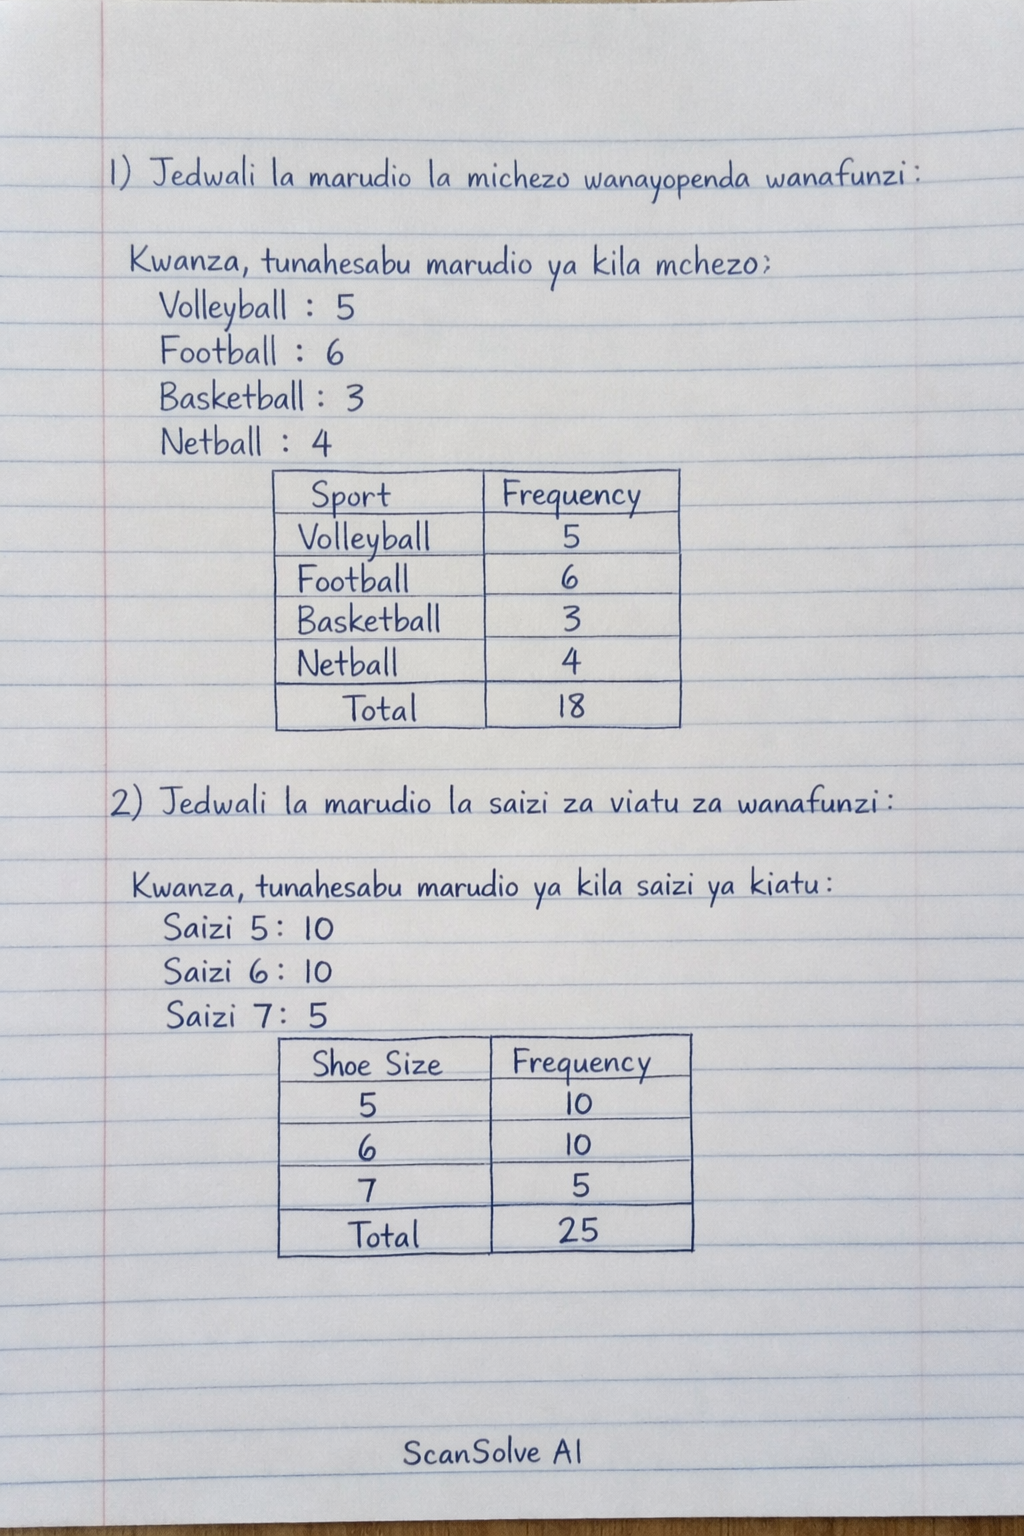 1) Jedwali la marudio la michezo wanayopenda wanafunzi:
Kwanza, tunahesabu marudio ya kila mchezo;
Volleyball : 5
Football : 6
Basketball : 3
Netball : 4
Sport Frequency
Volleyball 5
Football 6
Basketball 3
Netball 4
Total 18
2) Jedwali la marudio la saizi za viatu za wanafunzi:
Kwanza, tunahesabu marudio ya kila saizi ya kiatu:
Saizi 5: 10
Saizi 6: 10
Saizi 7: 5
Shoe Size Frequency
5 10
6 10
7 5
Total 25
ScanSolve AI